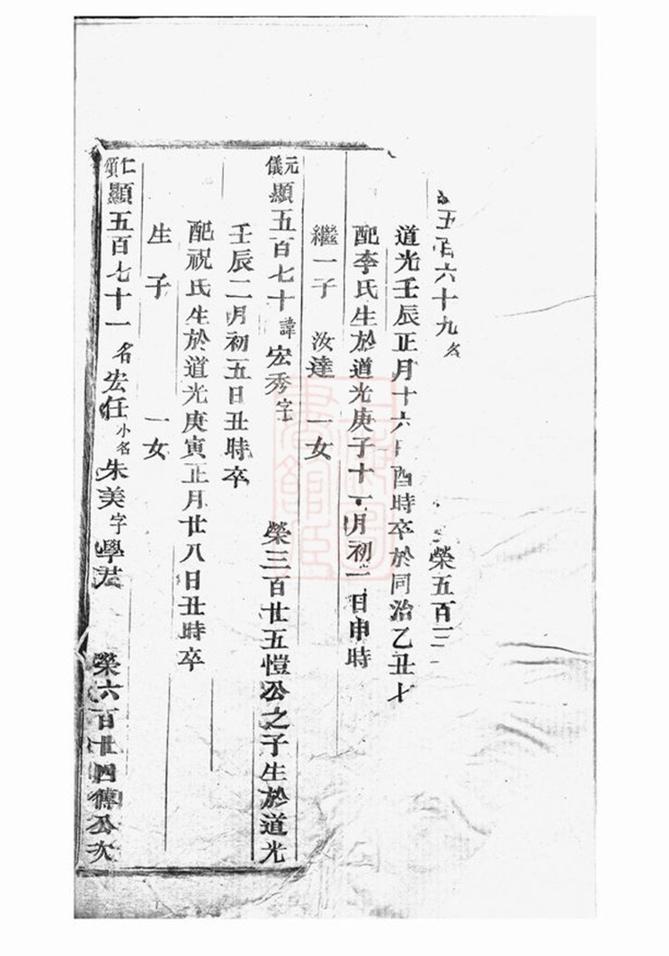 五百六十九名 榮五百三
道光壬辰正月十六日酉時卒於同治乙丑七
配李氏生於道光庚子十一月初一日申時
繼一子 汝達 一女
元儀 顯五百七十諱宏秀字 榮三百廿五愷公之子生於道光
壬辰二月初五日丑時卒
配祝氏生於道光庚寅正月廿八日丑時卒
生子 一女
仁頌 顯五百七十一名宏任小名朱美字學尹 榮六百廿四傳公次